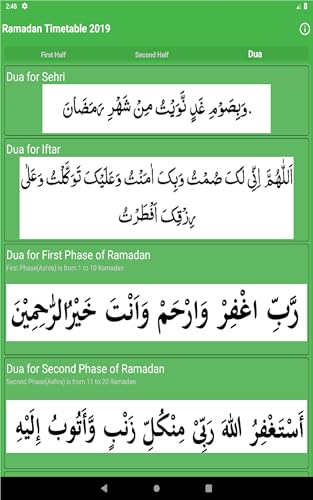 2:48
Ramadan Timetable 2019
First Half Second Half Dua
Dua for Sehri
وَبِصَوْمِ غَدٍ نَّوَيْتُ مِنْ شَهْرِ رَمَضَانَ.
Dua for Iftar
اَللّٰهُمَّ اِنِّی لَکَ صُمْتُ وَبِکَ اٰمَنْتُ وَعَلَيْکَ تَوَکَّلْتُ وَعَلٰی
رِزْقِکَ اَفْطَرْتُ
Dua for First Phase of Ramadan
First Phase(Ashra) is from 1 to 10 Ramadan
رَبِّ اغْفِرْ وَارْحَمْ وَاَنْتَ خَيْرُالرّٰحِمِيْنَ
Dua for Second Phase of Ramadan
Second Phase(Ashra) is from 11 to 20 Ramadan
أَسْتَغْفِرُ اللهَ رَبِّىْ مِنْكُلِّ زَنْبٍ وَّأَتُوبُ إِلَيْهِ